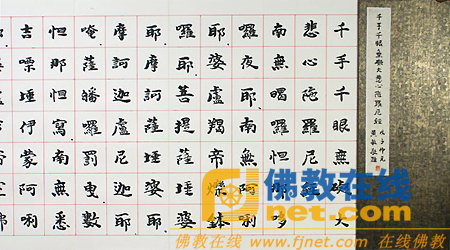 千手千眼無礙大
悲心陀羅尼
南無喝囉怛那哆
囉夜耶南無阿唎
耶婆盧羯帝爍鉢
囉耶菩提薩埵婆
耶摩訶薩埵婆耶
摩訶迦盧尼迦耶
唵薩皤囉罰曳數
怛那怛寫南無悉
吉嘌埵伊蒙阿唎
千手千眼無礙大悲心陀羅尼經
佛教在线
佛教在线 www.fjnet.com 佛教在线 www.fjnet.com